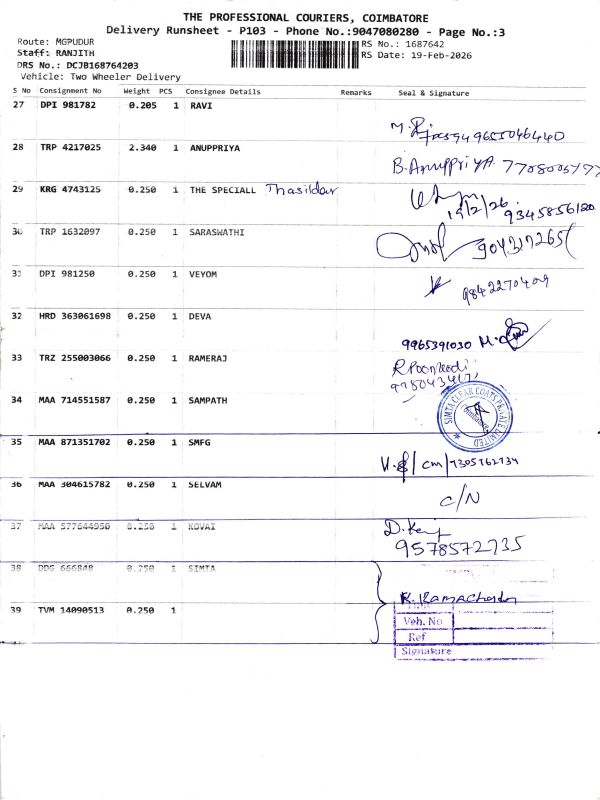 THE PROFESSIONAL COURIERS, COIMBATORE
Delivery Runsheet - P103 - Phone No.:9047080280 - Page No.:3
Route: MGPUDUR
RS No.: 1687642
Staff: RANJITH
RS Date: 19-Feb-2026
DRS No.: DCJB168764203
Vehicle: Two Wheeler Delivery
S No Consignment No Weight PCS Consignee Details Remarks Seal & Signature
27 DPI 981782 0.205 1 RAVI
28 TRP 4217025 2.340 1 ANUPPRIYA
B.Anuppriya
29 KRG 4743125 0.250 1 THE SPECIALL Thasildar
19/2/26. 9345856120
30 TRP 1632097 0.250 1 SARASWATHI
31 DPI 981250 0.250 1 VEYOM
9842270409
32 HRD 363061698 0.250 1 DEVA
9965391030
33 TRZ 255003066 0.250 1 RAMERAJ
R Poonkodi
34 MAA 714551587 0.250 1 SAMPATH
SIMTA CLEAR COATS PRIVATE LIMITED
35 MAA 871351702 0.250 1 SMFG
36 MAA 304615782 0.250 1 SELVAM
C/N
37 MAA 577644950 0.250 1 KOVAI
9578572735
38 DDG 666848 0.250 1 SIMTA
39 TVM 14090513 0.250 1
Veh. No
Ref
Signature